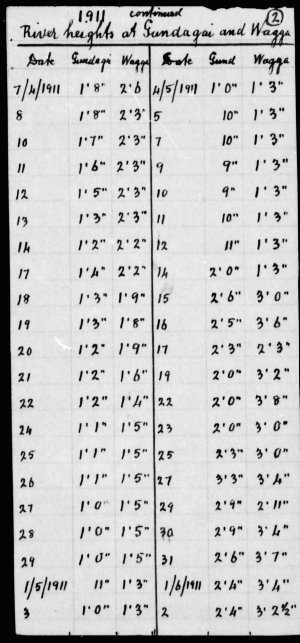 1911 continued
(2)
River heights at Gundagai and Wagga
Date Gundagi Wagga Date Gund Wagga
7/4/1911 1'8" 2'6 4/5/1911 1'0" 1'3"
8 1'8" 2'3" 5 10" 1'3"
10 1'7" 2'3" 7 10" 1'3"
11 1'6" 2'3" 9 9" 1'3"
12 1'5" 2'3" 10 9" 1'3"
13 1'3" 2'3" 11 10" 1'3"
14 1'2" 2'2" 12 11" 1'3"
17 1'4" 2'2" 14 2'0" 1'3"
18 1'3" 1'9" 15 2'6" 3'0"
19 1'3" 1'8" 16 2'5" 3'6"
20 1'2" 1'9" 17 2'3" 2'3"
21 1'2" 1'6" 19 2'0" 3'2"
22 1'2" 1'4" 22 2'0" 3'8"
24 1'1" 1'5" 23 2'0" 3'0"
25 1'1" 1'5" 25 2'3" 3'0"
26 1'1" 1'5" 27 3'3" 3'4"
27 1'0" 1'5" 29 2'9" 2'11"
28 1'0" 1'5" 30 2'9" 3'4"
29 1'0" 1'5" 31 2'6" 3'7"
1/5/1911 11" 1'3" 1/6/1911 2'4" 3'4"
3 1'0" 1'3" 2 2'4" 3'2½"